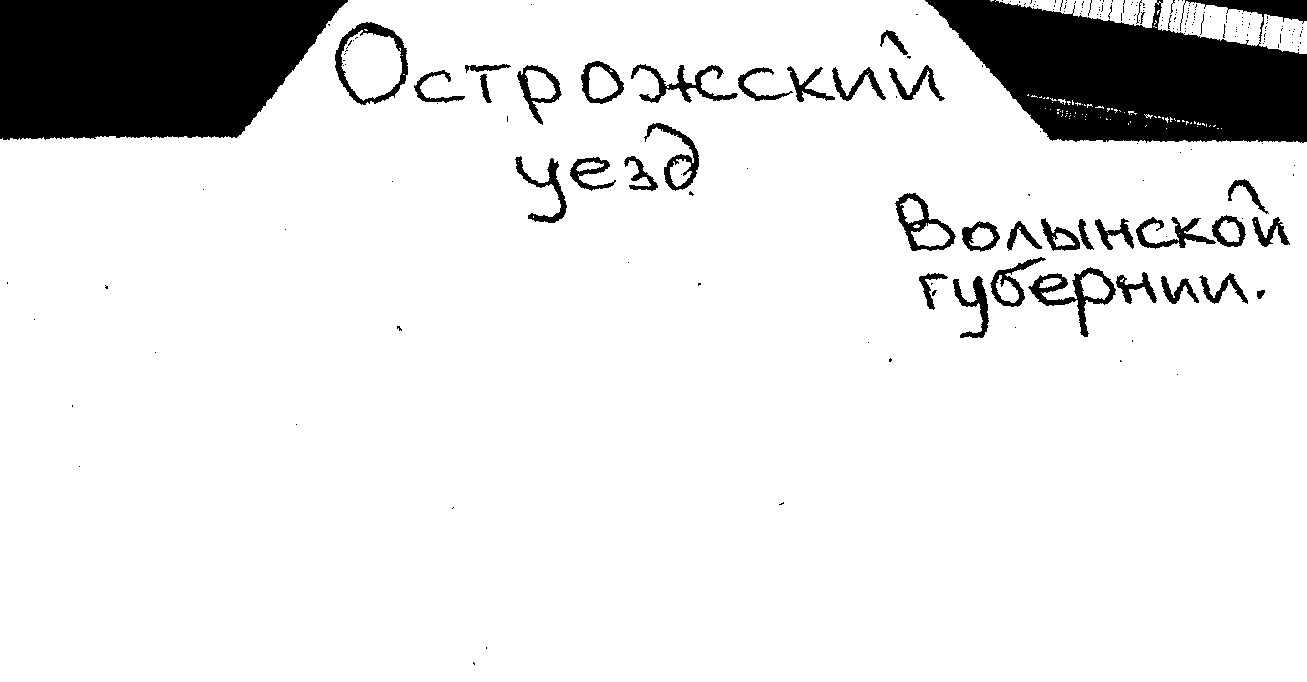 Острожский
уезд
Волынской
губернии.